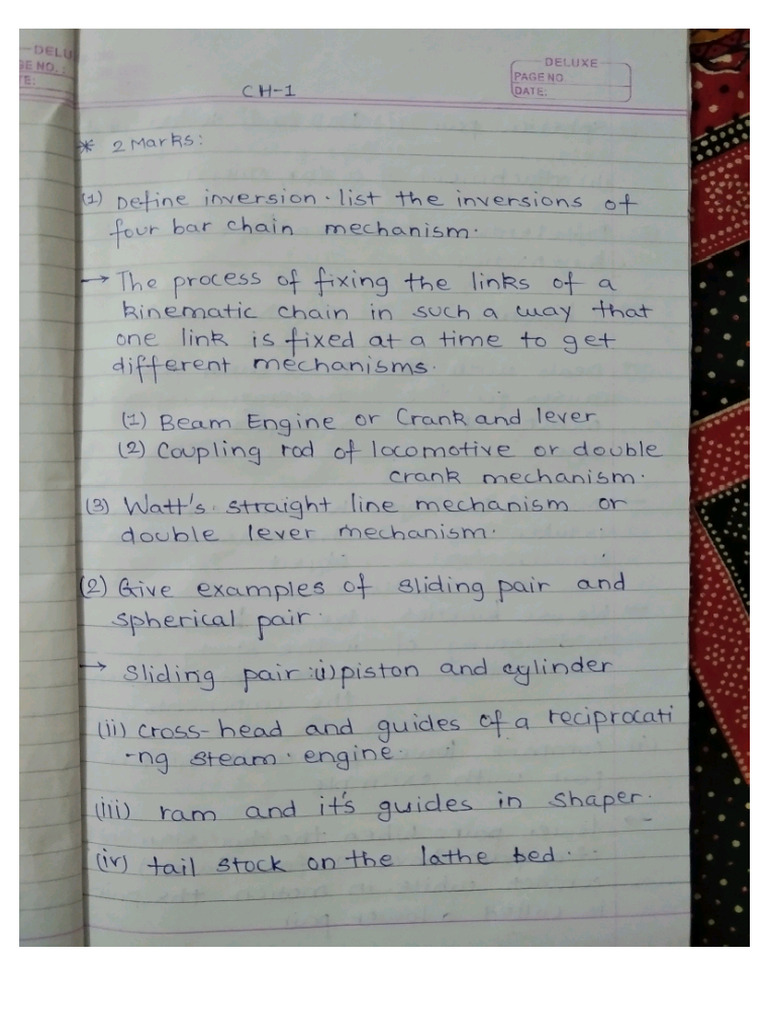 DELU
GE NO.:
TE:
DELUXE
PAGE NO.
DATE:
CH-1
* 2 Marks:
(1) Define inversion. list the inversions of
four bar chain mechanism.
→ The process of fixing the links of a
kinematic chain in such a way that
one link is fixed at a time to get
different mechanisms.
(1) Beam Engine or Crank and lever
(2) Coupling rod of locomotive or double
crank mechanism.
(3) Watt's straight line mechanism or
double lever mechanism.
(2) Give examples of sliding pair and
spherical pair.
→ Sliding pair :(i) piston and cylinder
(ii) cross-head and guides of a reciprocati
-ng steam engine.
(iii) ram and it's guides in shaper.
(iv) tail stock on the lathe bed.